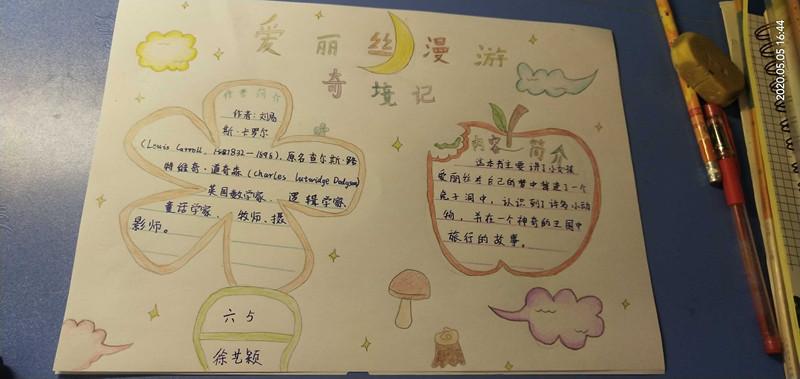 爱丽丝漫游
奇境记
作者简介
作者:刘易
斯·卡罗尔
(Louis Carroll, 1832-1898),原名查尔斯·路
特维奇·道奇森(Charles Lutwidge Dodgson)
英国数学家、逻辑学家、
童话学家、牧师、摄
影师。
内容简介
这本书主要讲了小女孩
爱丽丝在自己的梦中掉进了一个
兔子洞中,认识到了许多小动
物,并在一个神奇的王国中
旅行的故事。
六5
徐艺颖
2020.05.05 16:44